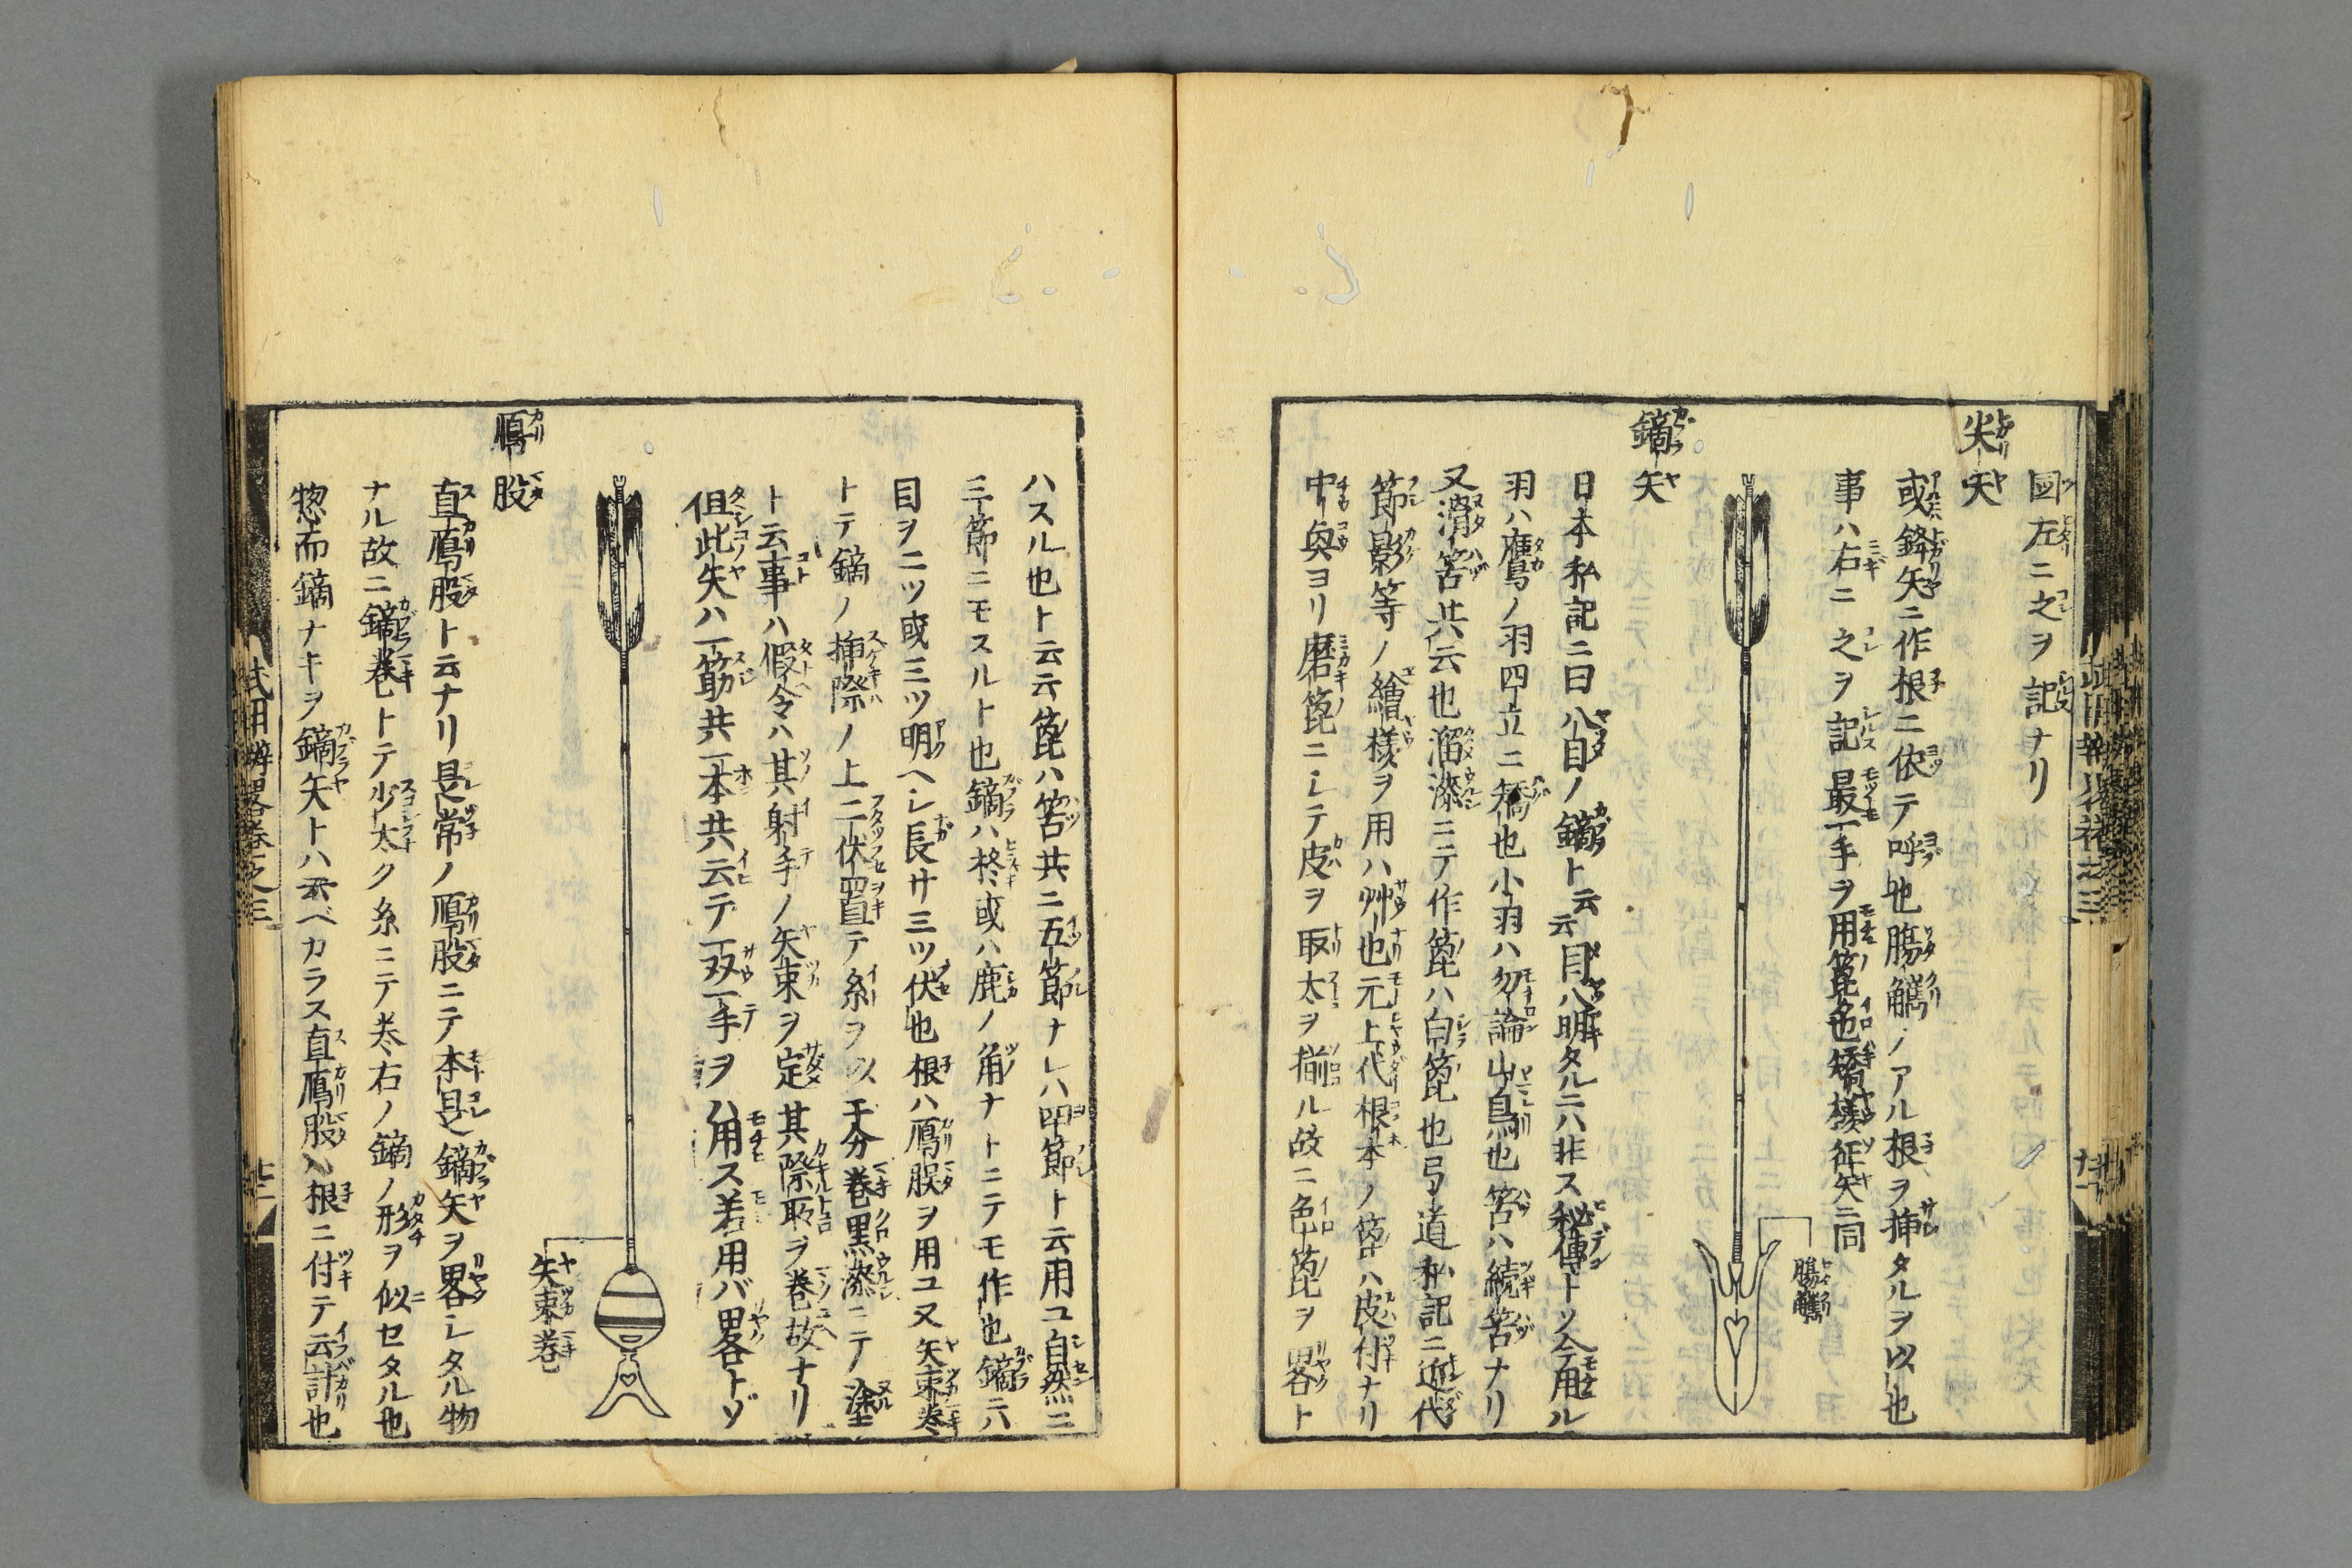 圖左ニ之ヲ記ナリ
尖矢
或鋒矢ニ作根ニ依テ呼也膓觽ノアル根ヲ挿タルヲ以也
事ハ右ニ之ヲ記最一手ヲ用箆色矯樣征矢ニ同
膓觽
鏑矢
日本私記ニ曰八目ノ鏑ト云云目八明タルニハ非ス秘傳トソ今用ル
羽ハ鷹ノ羽四立ニ矯也小羽ハ勿論山鳥也筈ハ続筈ナリ
又滑筈共云也溜漆ニテ作箆ハ白箆也弓道私記ニ近代
節影等ノ繪樣ヲ用ハ艸也元上代根本ノ箆ハ皮付ナリ
中奥ヨリ磨箆ニシテ皮ヲ取太ヲ揃ル故ニ色箆ヲ畧ト
ハスル也ト云云箆ハ筈共ニ五節ナレハ四節ト云用ユ自然ニ
三節ニモスルト也鏑ハ柊或ハ鹿ノ角ナトニテモ作也鏑ニハ
目ヲ二ツ或三ツ明ヘシ長サ三ツ伏也根ハ鴈股ヲ用ユ又矢束巻
トテ鏑ノ挿際ノ上二伏置テ糸ヲ以五分巻黒漆ニテ塗
ト云事ハ假令ハ其射手ノ矢束ヲ定其際取ヲ巻故ナリ
但此矢ハ一筋共一本共云テ一双一手ヲハ用ス若用バ畧トゾ
矢束巻
鴈股
直鴈股ト云ナリ是常ノ鴈股ニテ本是鏑矢ヲ畧シタル物
ナル故ニ鏑巻トテ少太ク糸ニテ巻右ノ鏑ノ形ヲ似セタル也
惣而鏑ナキヲ鏑矢トハ云ベカラス直鴈股ハ根ニ付テ云計也
武用辨畧巻之三